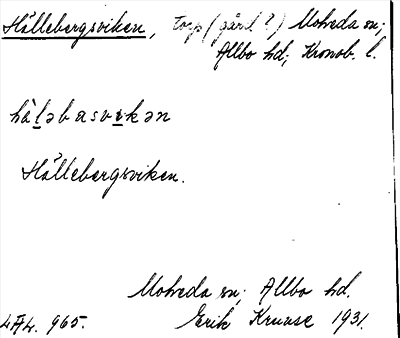 Hållebergsviken, torp (gård?) Moheda sn;
Allbo hd; Kronob. l.
hålabasvikən
Hållebergsviken.
Moheda sn; Allbo hd.
965. Erik Kruuse 1931.